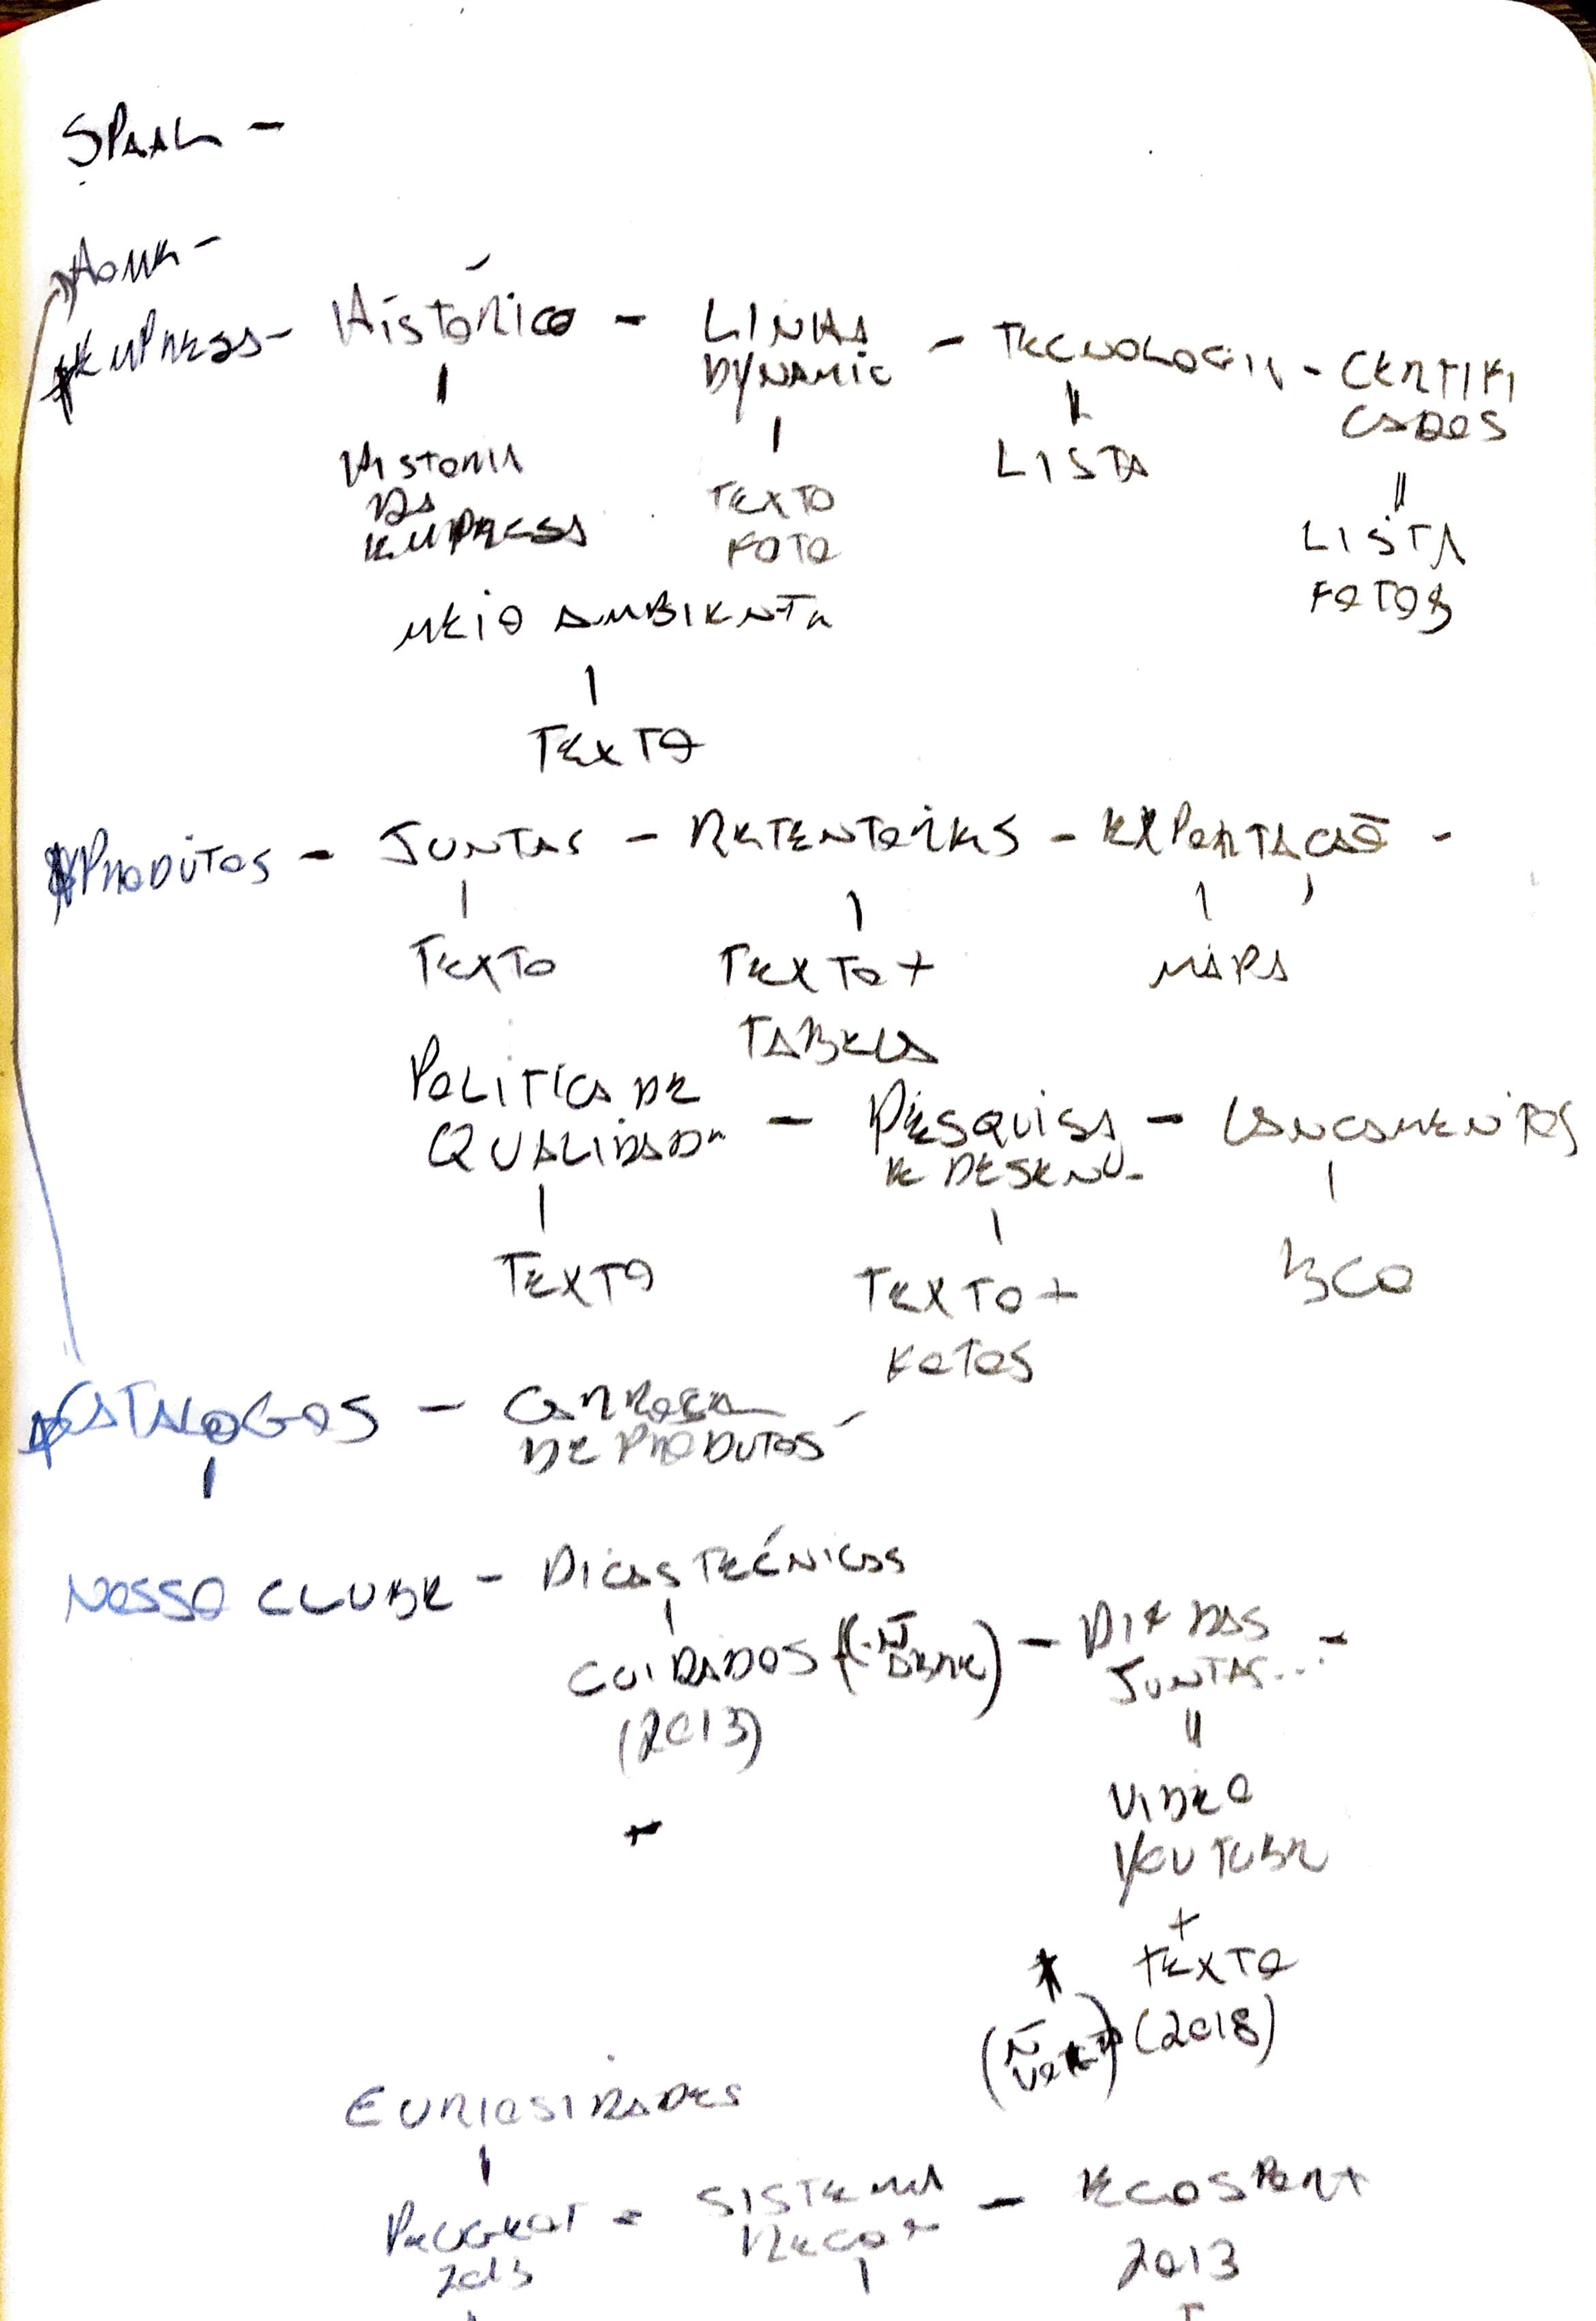 SPAAL -
HOME -
EMPRESA - HISTÓRICO - LINHA DYNAMIC - TECNOLOGIA - CERTIFI
CADOS
HISTORIA DA EMPRESA
TEXTO FOTO
LISTA
LISTA FOTOS
MEIO AMBIENTE
TEXTO
PRODUTOS - JUNTAS - RETENTORES - EXPORTAÇÃO -
TEXTO
TEXTO +
TABELA
MAPA
POLITICA DE
QUALIDADE - PESQUISA - LANCAMENTOS
E DESENV.
TEXTO
TEXTO +
FOTOS
BCO
CATALOGOS -
DE PRODUTOS
NOSSO CLUBE - DICAS TÉCNICAS
CUIDADOS (Ñ ABRE) - DIF DAS JUNTAS... -
(2013)
VIDEO
YOUTUBE
+
TEXTO
(2018)
CURIOSIDADES
PEUGEOT - SISTEMA - ECOSPORT
2013
2013